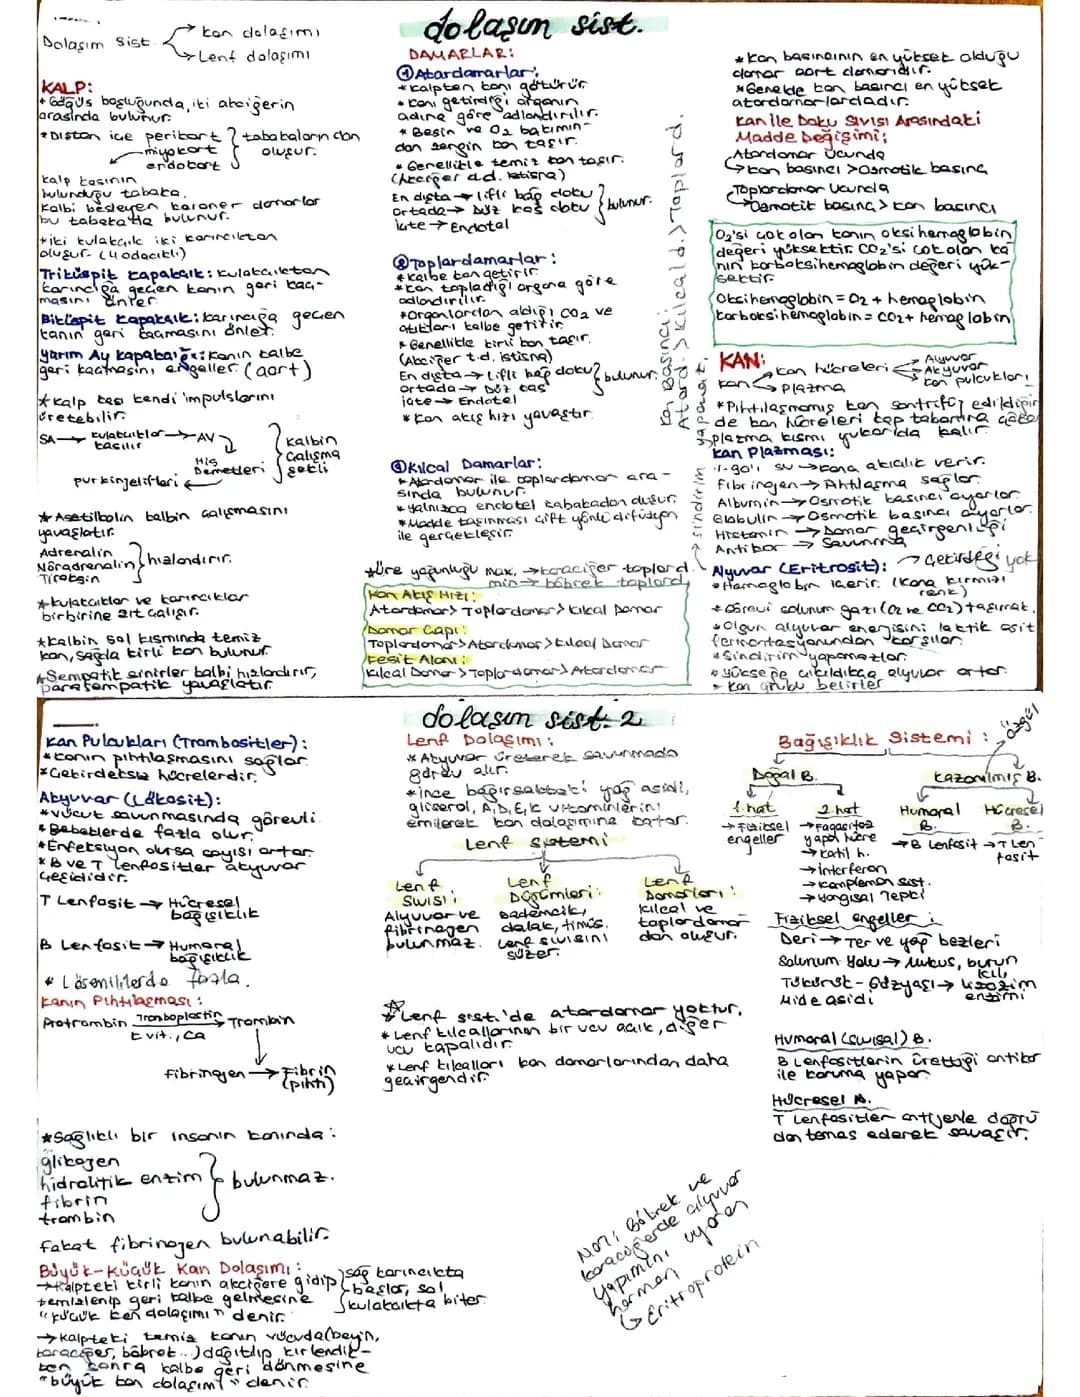 dolaşım sist.
Dolaşım Sist.
→ kan dolaşımı
→ Lenf dolaşımı
KALP:
* Göğüs boşluğunda, iki akciğerin
arasında bulunur.
* Dıştan içe perikart
miyokart
endokart
tabakalarından
oluşur.
kalp kasının
bulunduğu tabaka.
kalbi besleyen koroner damarlar
bu tabakada bulunur.
* iki kulakçık iki karıncıktan
oluşur. (4 odacıklı)
Triküspit kapakçık: kulakçıktan
karıncığa geçen kanın geri kaç-
masını önler.
Biküspit kapakçık: karıncığa geçen
kanın geri kaçmasını önler.
Yarım Ay kapakçığı: kanın kalbe
geri kaçmasını engeller (aort)
* kalp kası kendi impulslarını
üretebilir.
SA → kulakçıklar kasılır → AV
His
Demetleri
purkinje lifleri ←
kalbin
çalışma
şekli
* Asetilkolin kalbin çalışmasını
yavaşlatır.
Adrenalin
Nöradrenalin
Tiroksin
hızlandırır.
* kulakçıklar ve karıncıklar
birbirine zıt çalışır.
* kalbin sol kısmında temiz
kan, sağda kirli kan bulunur.
* Sempatik sinirler kalbi hızlandırır,
parasempatik yavaşlatır.
DAMARLAR:
① Atardamarlar:
* kalpten kanı götürür.
* kanı getirdiği organın
adına göre adlandırılır.
* Besin ve O2 bakımın-
dan zengin kan taşır.
* Genellikle temiz kan taşır.
(Akciğer a.d. istisna)
En dışta → lifli bağ doku
Ortada → Düz kas doku
içte → Endotel
bulunur.
② Toplardamarlar:
* kalbe kan getirir.
* kan topladığı organa göre
adlandırılır.
* Organlardan aldığı CO2 ve
atıkları kalbe getirir.
* Genellikle kirli kan taşır.
(Akciğer t.d. istisna)
En dışta → Lifli bağ doku
ortada → Düz kas
içte → Endotel
bulunur.
* kan akış hızı yavaştır.
③ Kılcal Damarlar:
* Atardamar ile toplardamar ara-
sında bulunur.
* Yalnızca endotel tabakadan oluşur.
* Madde taşınması çift yönlü difüzyon
ile gerçekleşir.
* Üre yoğunluğu max. → karaciğer toplard.
min → böbrek toplard.
Kan Akış Hızı:
Atardamar > Toplardamar > kılcal Damar
Damar Çapı:
Toplardamar > Atardamar > kılcal Damar
Kesit Alanı:
Kılcal Damar > Toplardamar > Atardamar
Kan Basıncı:
Atard. > kılcal d. > Toplard.
* kan basıncının en yüksek olduğu
damar aort damarıdır.
* Genelde kan basıncı en yüksek
atardamarlardadır.
Kan ile Doku Sıvısı Arasındaki
Madde Değişimi:
Atardamar Ucunda
→ kan basıncı > Osmotik basınç
Toplardamar Ucunda
→ Osmotik basınç > kan basıncı
O2'si çok olan kanın oksihemoglobin
değeri yüksektir. CO2'si çok olan ka-
nın karboksihemoglobin değeri yük-
sektir.
Oksihemoglobin = O2 + hemoglobin
karboksihemoglobin = CO2 + hemoglobin
KAN:
kan
→ kan hücreleri
→ Plazma
Alyuvar
Akyuvar
kan pulcukları
* Pıhtılaşmamış kan santrifüj edildiğin-
de kan hücreleri kap tabanına çöker
plazma kısmı yukarıda kalır.
Kan Plazması:
%90'ı su → kana akıcılık verir.
Fibrinojen → Pıhtılaşma sağlar.
Albumin → Osmotik basıncı ayarlar.
Globulin → Osmotik basıncı ayarlar.
Histamin → Damar geçirgenliği
Antikor → Savunma
Alyuvar (Eritrosit): → Çekirdeği yok
* Hemoglobin içerir. (kana kırmızı
renk)
* Görevi solunum gazı (O2 ve CO2) taşımak.
* Olgun alyuvar enerjisini laktik asit
fermantasyonundan karşılar.
* Sindirim yapamazlar.
→ sindirim
yapamaz
* Yükseğe çıkıldıkça alyuvar artar.
* kan grubu belirler
dolaşım sist. 2
Kan Pulcukları (Trombositler):
* kanın pıhtılaşmasını sağlar
* Çekirdeksiz hücrelerdir.
Akyuvar (Lökosit):
* vücut savunmasında görevli.
* Bebeklerde fazla olur.
* Enfeksiyon olursa sayısı artar.
* B ve T lenfositler akyuvar
çeşididir.
T Lenfosit → Hücresel
bağışıklık
B Lenfosit → Humoral
bağışıklık
* Lösemililerde fazla.
Kanın Pıhtılaşması:
Protrombin → Trombin
Tromboplastin
K vit., Ca
Fibrinojen → Fibrin
(pıhtı)
* Sağlıklı bir insanın kanında:
glikojen
hidrolitik enzim
fibrin
trombin
bulunmaz.
Fakat fibrinojen bulunabilir.
Büyük-Küçük Kan Dolaşımı:
→ Kalpteki kirli kanın akciğere gidip
temizlenip geri kalbe gelmesine
"küçük kan dolaşımı" denir.
sağ karıncıkta
başlar, sol
kulakçıkta biter.
→ Kalpteki temiz kanın vücuda (beyin,
karaciğer, böbrek...) dağıtılıp kirlendik-
ten sonra kalbe geri dönmesine
"büyük kan dolaşımı" denir.
Lenf Dolaşımı:
* Akyuvar üreterek savunmada
görev alır.
* ince bağırsaktaki yağ asidi,
gliserol, A, D, E, K vitaminlerini
emilerek kan dolaşımına katar.
Lenf sistemi
Lenf
Sıvısı:
Alyuvar ve
fibrinojen
bulunmaz.
Lenf
Düğümleri:
Bademcik,
dalak, timüs.
Lenf sıvısını
süzer.
Lenf
Damarları:
kılcal ve
toplardamar-
dan oluşur.
* Lenf sist.'de atardamar yoktur.
* Lenf kılcallarının bir ucu açık, diğer
ucu kapalıdır.
* Lenf kılcalları kan damarlarından daha
geçirgendir.
NOT: Böbrek ve
karaciğerde alyuvar
yapımını uyaran
hormon
→ Eritroprotein
Bağışıklık Sistemi:
→ özgül
Doğal B.
kazanılmış B.
1. hat
→ Fiziksel
engeller
2. hat
→ Fagositoz
yapan hücre
→ katil h.
→ İnterferon
→ kompleman sist.
→ Yangısal Tepki
Humoral
B.
→ B lenfosit
Hücresel
B.
→ T Len-
fosit
Fiziksel engeller:
Deri → Ter ve yağ bezleri
Solunum Yolu → Mukus, burun
kılı
Tükürük - Gözyaşı → Lizozim
enzimi
Mide asidi
Humoral (sıvısal) B.
B lenfositlerin ürettiği antikor
ile koruma yapar.
Hücresel B.
T lenfositler antijenle doğru-
dan temas ederek savaşır.